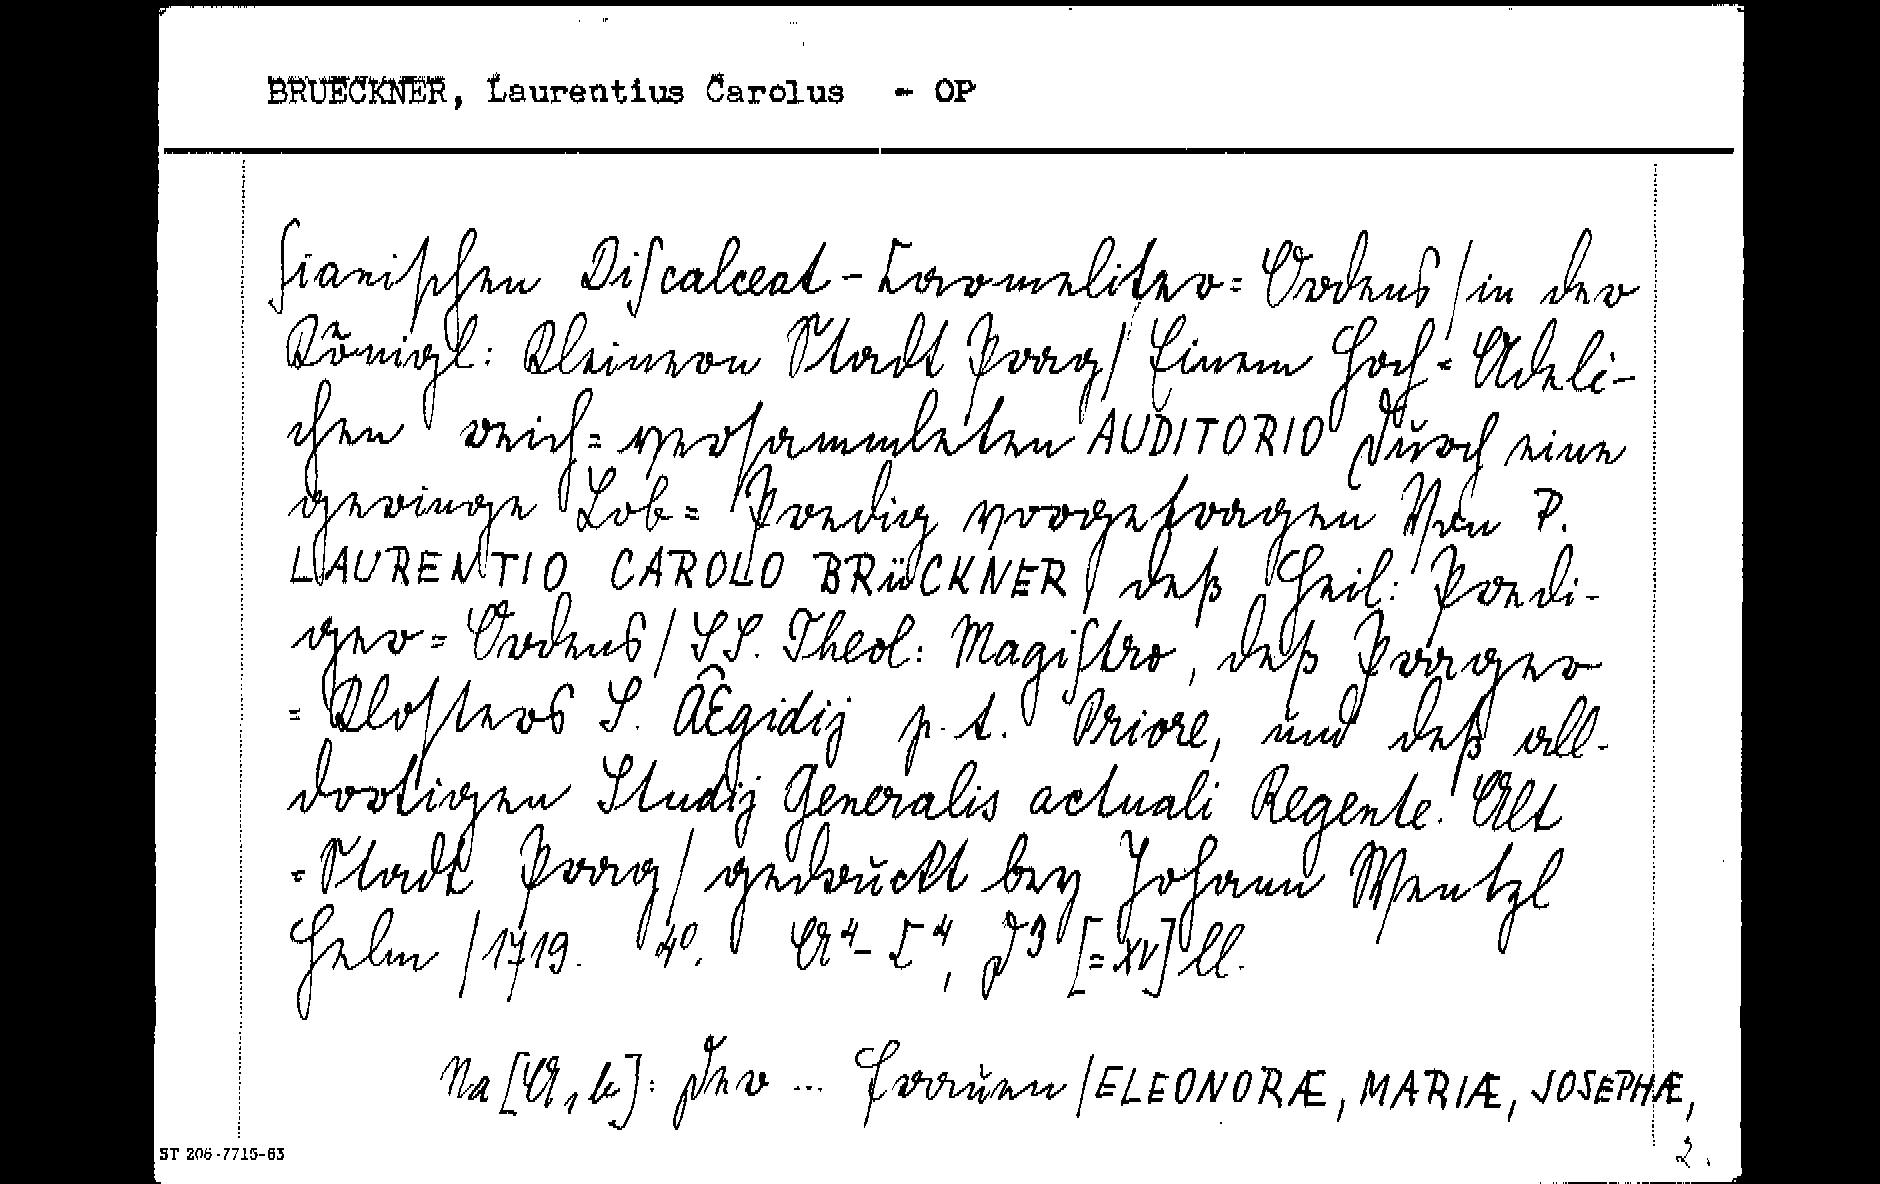 BRUECKNER, Laurentius Carolus - OP
sianischen Discalceat-Carmeliter= Ordens / in der
Königl: Kleinern Stadt Prag / Einem Hoch=Adeli-
chen reich=versammleten AUDITORIO durch eine
geringe Lob= Predig vorgetragen Von P.
LAURENTIO CAROLO BRüCKNER / deß Heil: Predi-
ger=Ordens / SS. Theol: Magistro, deß Prager
=Klosters S. Ægidij p. t. Priore, und deß all-
dortigen Studij Generalis actuali Regente. Alt
=Stadt Prag / gedruckt bey Johann Wentzl
Helm / 1719. 4°. A⁴-C⁴, D³ [=XV] ll.
Na [A1b]: Der ... Frauen / ELEONORÆ, MARIÆ, JOSEPHÆ,
2.
ST 206-7715-63